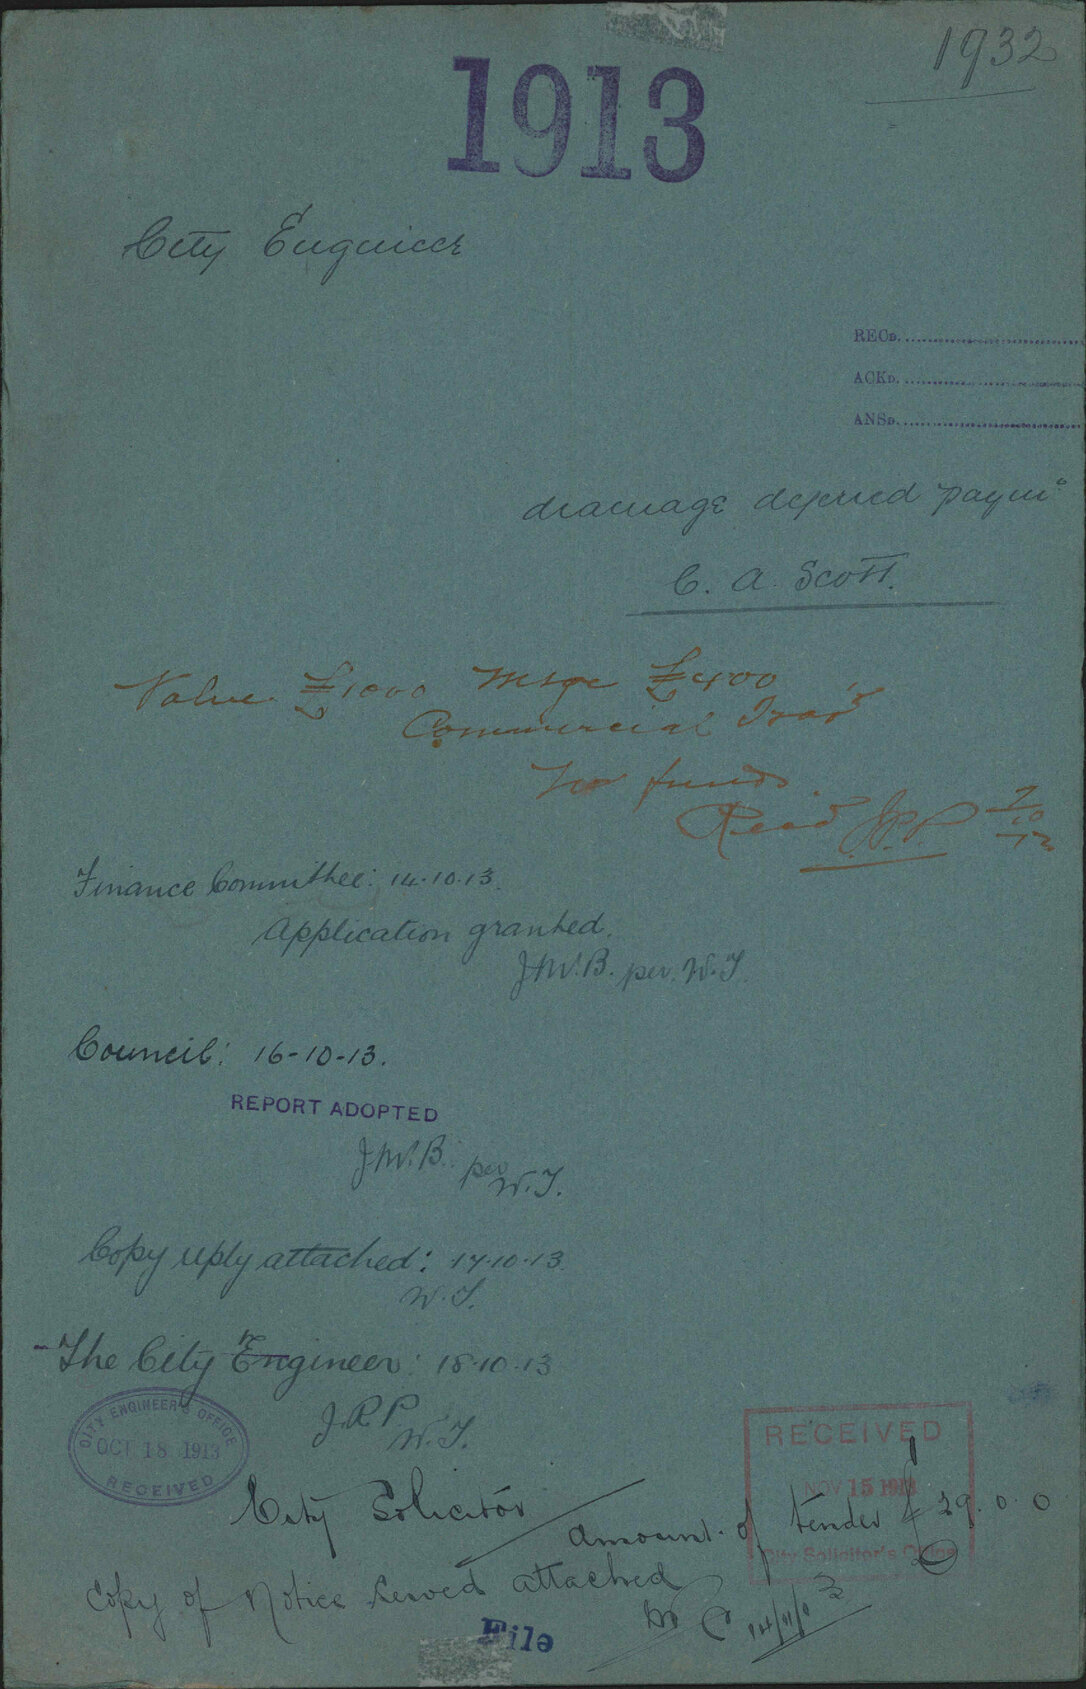 1932
1913
City Engineer
RECD.
ACKD.
ANSD.
drainage deferred paymt
C. A. Scott.
Value £1000 Mtge £400
Commercial Trav
No funds.
Read JRP 7/10/13
Finance Committee: 14.10.13.
Application granted.
J.M.B. per W.T.
Council: 16-10-13.
REPORT ADOPTED
J.M.B. per
W.T.
Copy reply attached: 17.10.13.
W.T.
The City Engineer: 18.10.13
J.R.P.
W.T.
CITY ENGINEER'S OFFICE
OCT 18 1913
RECEIVED
RECEIVED
NOV 15 1913
City Solicitor's Office
City Solicitor
Amount of tender £29.0.0
Copy of Notice served attached
14/11/13
File